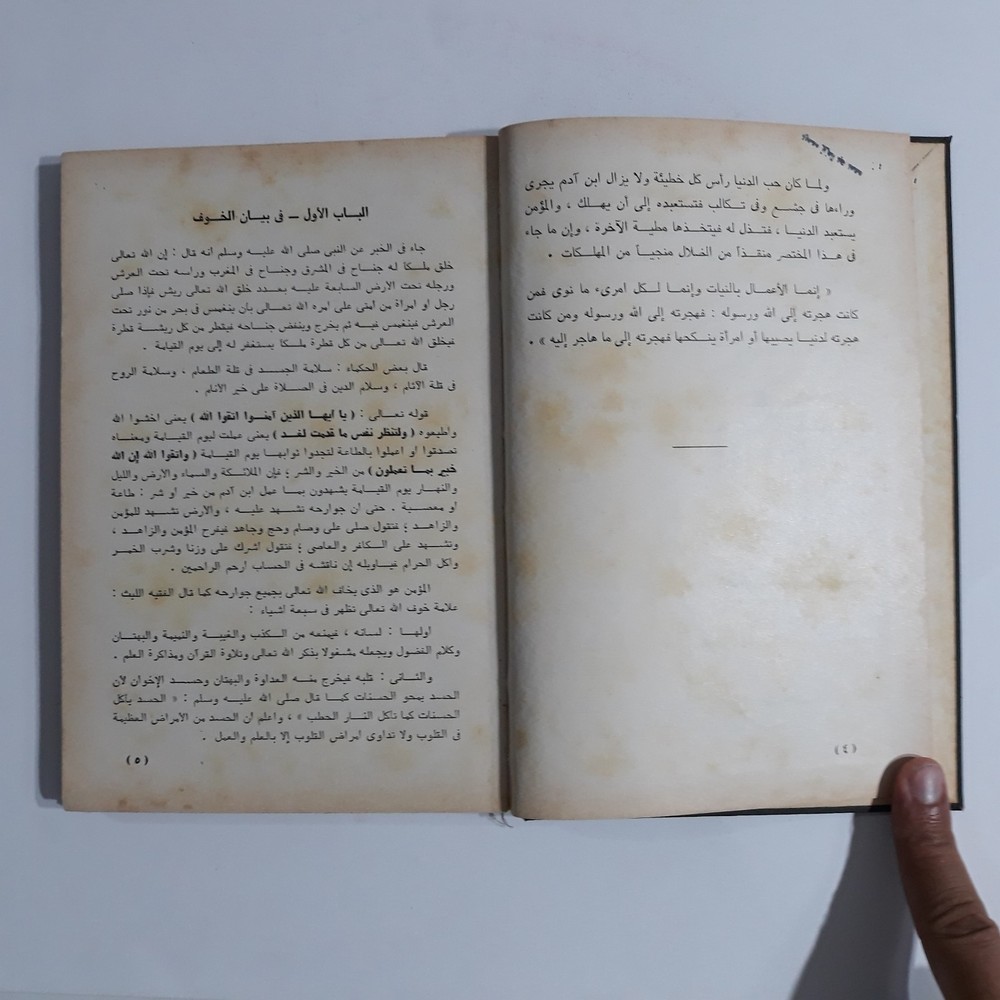 ولما كان حب الدنيا رأس كل خطيئة ولا يزال ابن آدم يجرى
وراءها فى جشع وفى تكالب فتستعبده إلى أن يهلك ، والمؤمن
يستعبد الدنيا ، فتذل له فيتخذها مطية الآخرة ، وإن ما جاء
فى هذا المختصر منقذاً من الضلال منجياً من المهلكات .
« إنما الأعمال بالنيات وإنما لكل امرىء ما نوى فمن
كانت هجرته إلى الله ورسوله : فهجرته إلى الله ورسوله ومن كانت
هجرته لدنيا يصيبها أو امرأة ينكحها فهجرته إلى ما هاجر إليه » .
( ٤ )
الباب الأول – فى بيان الخوف
جاء فى الخبر عن النبى صلى الله عليه وسلم أنه قال : إن الله تعالى
خلق ملكا له جناح فى المشرق وجناح فى المغرب ورأسه تحت العرش
ورجله تحت الأرض السابعة عليه بعدد خلق الله تعالى ريش فإذا صلى
رجل أو امرأة من أمتى على أمره الله تعالى بأن ينغمس فى بحر من نور تحت
العرش فينغمس فيه ثم يخرج وينفض جناحه فيقطر من كل ريشة قطرة
فيخلق الله تعالى من كل قطرة ملكا يستغفر له إلى يوم القيامة .
قال بعض الحكماء : سلامة الجسد فى قلة الطعام ، وسلامة الروح
فى قلة الآثام ، وسلام الدين فى الصلاة على خير الأنام .
قوله تعالى : ( يا أيها الذين آمنوا اتقوا الله ) يعنى اخشوا الله
وأطيعوه ( ولتنظر نفس ما قدمت لغد ) يعنى عملت ليوم القيامة ومعناه
تصدقوا أو اعملوا بالطاعة لتجدوا ثوابها يوم القيامة ( واتقوا الله إن الله
خبير بما تعملون ) من الخير والشر ؛ فإن الملائكة والسماء والأرض والليل
والنهار يوم القيامة يشهدون بما عمل ابن آدم من خير أو شر : طاعة
أو معصية . حتى أن جوارحه تشهد عليه ، والأرض تشهد للمؤمن
والزاهد ؛ فتقول صلى على وصام وحج وجاهد فيفرح المؤمن والزاهد ،
وتشهد على الكافر والعاصى ؛ فتقول أشرك على وزنا وشرب الخمر
وأكل الحرام فياويله إن ناقشه فى الحساب أرحم الراحمين .
المؤمن هو الذى يخاف الله تعالى بجميع جوارحه كما قال الفقيه الليث :
علامة خوف الله تعالى تظهر فى سبعة أشياء :
أولها : لسانه ، فيمنعه من الكذب والغيبة والنميمة والبهتان
وكلام الفضول ويجعله مشغولا بذكر الله تعالى وتلاوة القرآن ومذاكرة العلم .
والثانى : قلبه فيخرج منه العداوة والبهتان وحسد الإخوان لأن
الحسد يمحو الحسنات كما قال صلى الله عليه وسلم : « الحسد يأكل
الحسنات كما تأكل النار الحطب » ، واعلم أن الحسد من الأمراض العظيمة
فى القلوب ولا تداوى أمراض القلوب إلا بالعلم والعمل .
( ٥ )